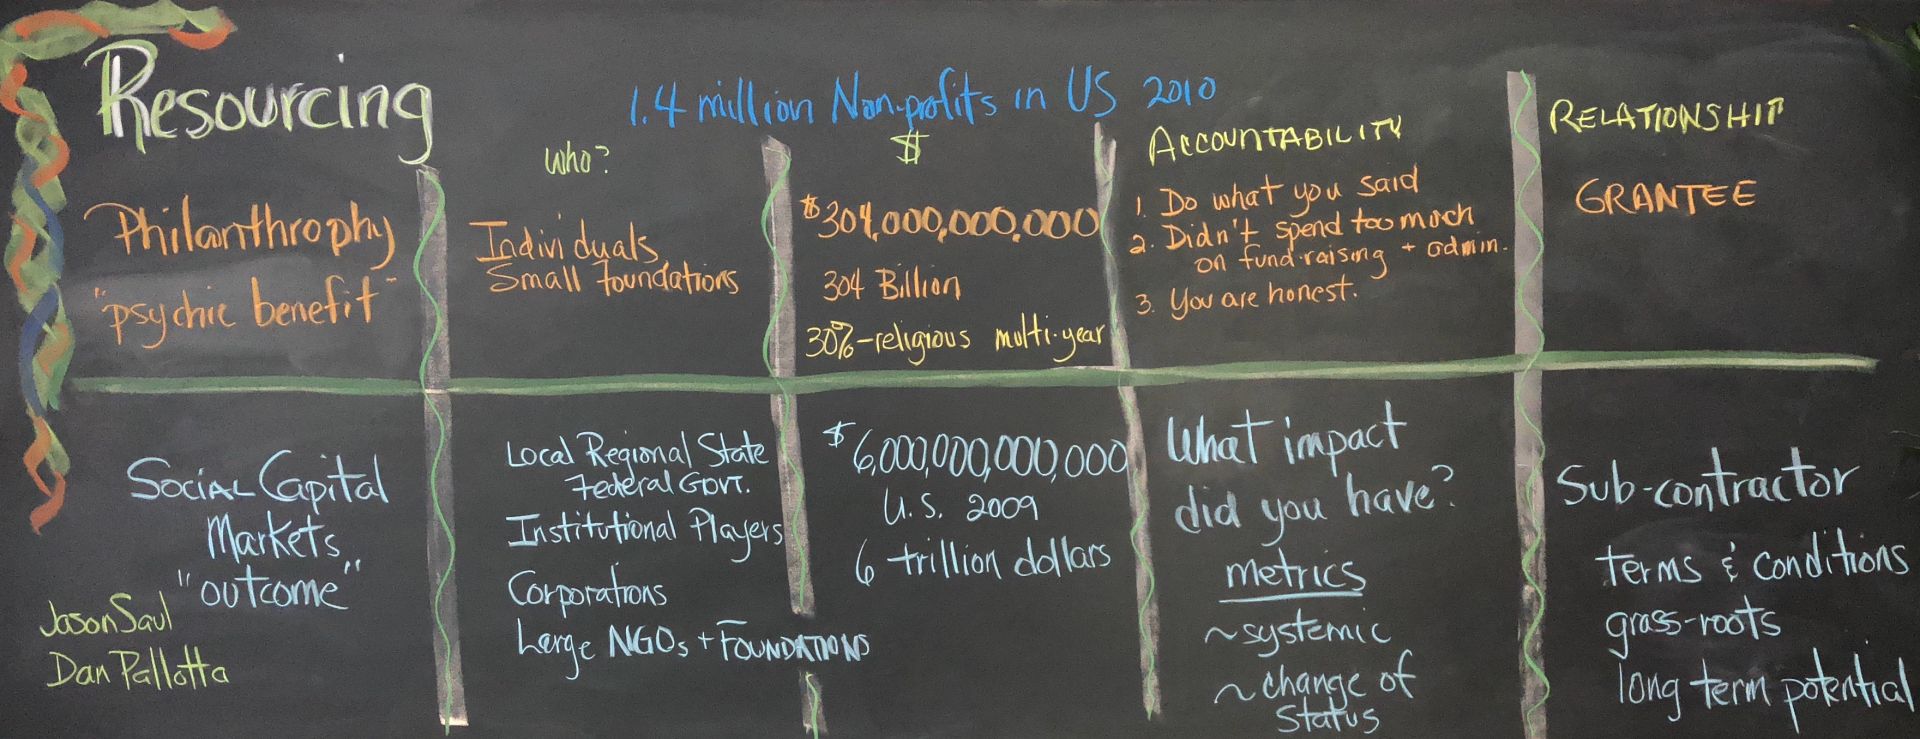 Resourcing
1.4 million Non-profits in US 2010
WHO?
$
ACCOUNTABILITY
RELATIONSHIP
Philanthrophy
"psychic benefit"
Individuals,
Small foundations
$304,000,000,000
304 Billion
30%-religious multi-year
1. Do what you said
2. Didn't spend too much
on fund-raising + admin.
3. You are honest.
GRANTEE
Social Capital
Markets
"outcome"
Jason Saul
Dan Pallotta
Local Regional State
Federal Govt.
Institutional Players
Corporations
Large NGOs + Foundations
$6,000,000,000,000
U.S. 2009
6 trillion dollars
What impact
did you have?
metrics
~systemic
~change of
status
Sub-contractor
terms & conditions
grass-roots
long term potential